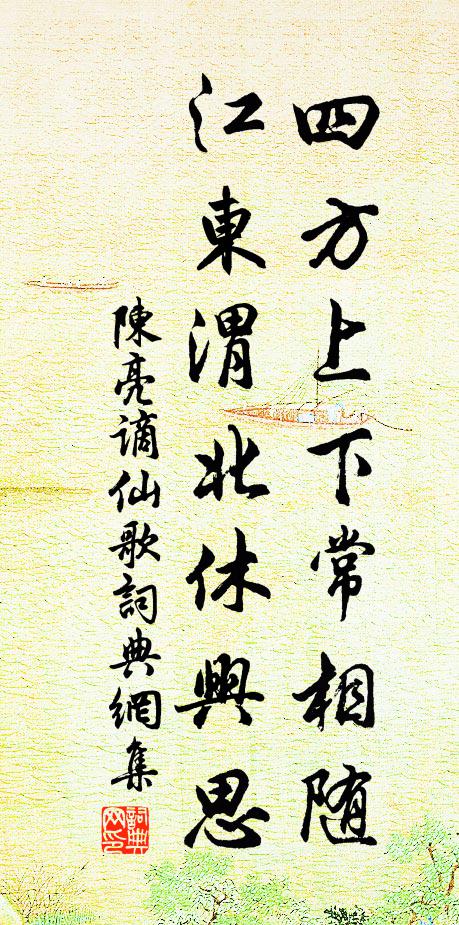 四方上下常相随
江東渭北休興思
陳亮謫仙歌詞典網集
詞典網印